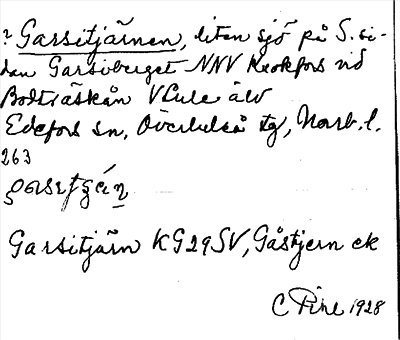 ? Garsitjärnen, liten sjö på S. si-
dan Garsiberget NNV Krokfors vid
Bodträskån V Lule älv
Edefors sn, Överluleå tg, Norrb. l.
263
Garsitjärn KG29SV, Gåstjern ek
C Pihl 1928